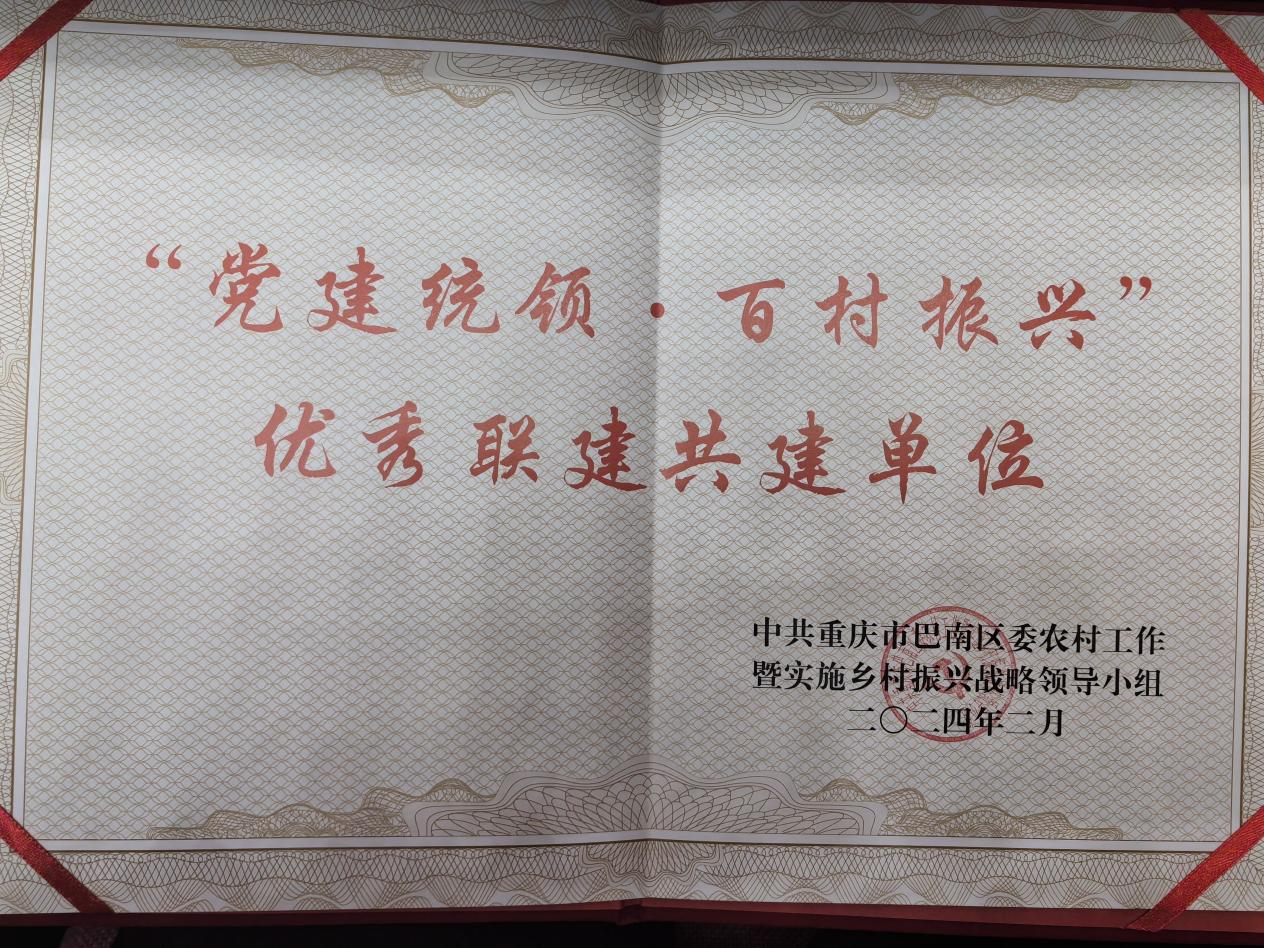 “党建统领·百村振兴”
优秀联建共建单位
中共重庆市巴南区委农村工作
暨实施乡村振兴战略领导小组
二〇二四年二月